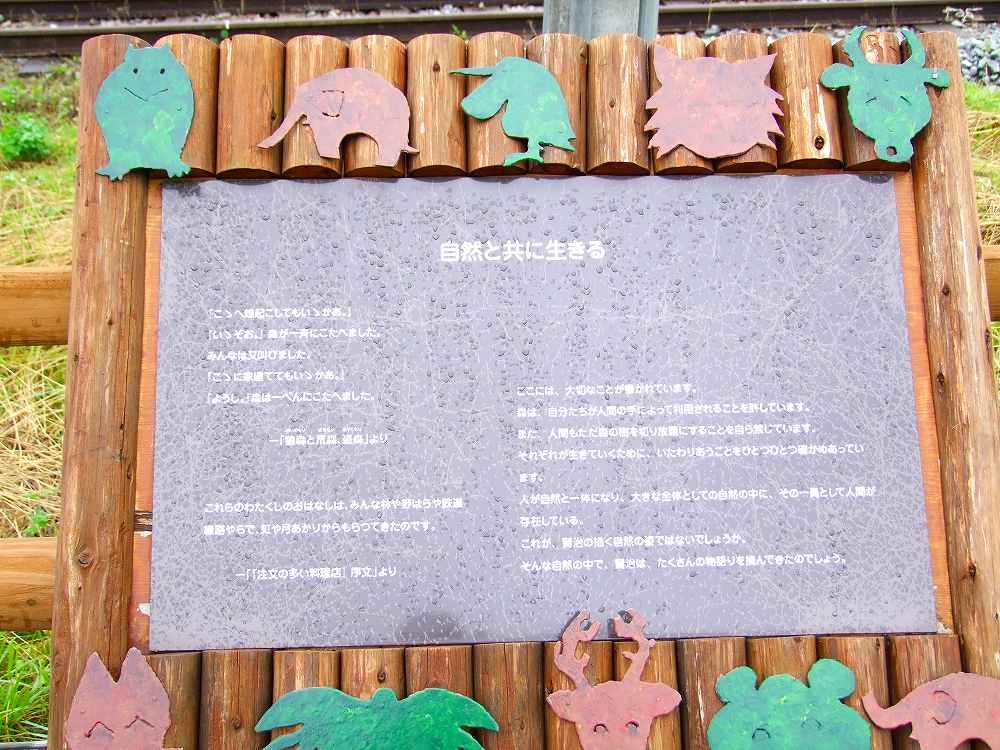 自然と共に生きる
「こゝへ畑起こしてもいゝかあ。」
「いゝぞお。」森が一斉にこたへました。
みんなは又叫びました。
「こゝに家建ててもいゝかあ。」
「ようし。」森は一ぺんにこたへました。
―「狼森と笊森、盗森」より
これらのわたくしのおはなしは、みんな林や野はらや鉄道
線路やらで、虹や月あかりからもらつてきたのです。
―「『注文の多い料理店』序文」より
ここには、大切なことが書かれています。
森は、自分たちが人間の手によって利用されることを許しています。
また、人間もただ森の樹を切り放題にすることを自ら禁じています。
それぞれが生きていくために、いたわりあうことをひとつひとつ確かめあってい
ます。
人が自然と一体になり、大きな全体としての自然の中に、その一員として人間が
存在している。
これが、賢治の描く自然の姿ではないでしょうか。
そんな自然の中で、賢治は、たくさんの物語りを摘んできたのでしょう。